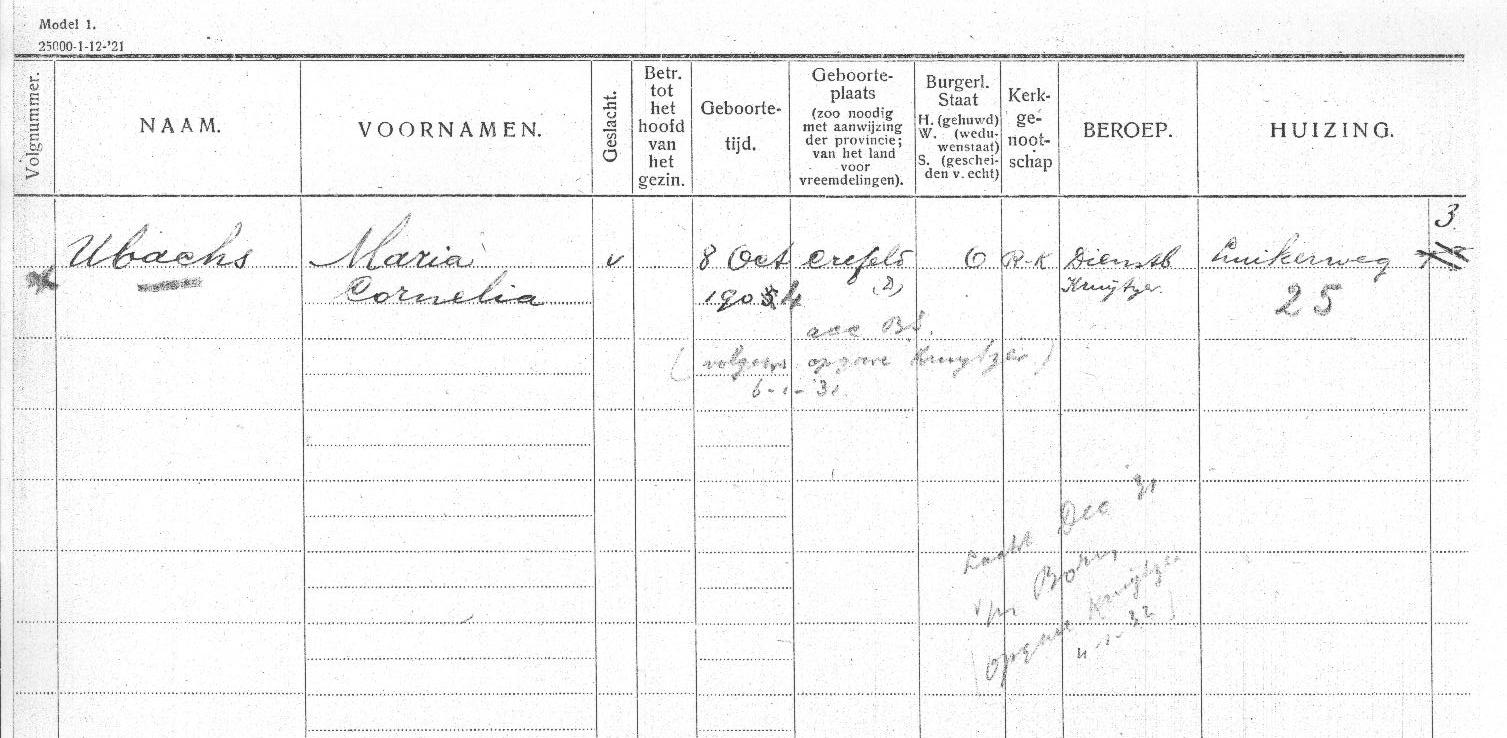 Model 1.
25000-1-12-'21
Volgnummer.
NAAM.
VOORNAMEN.
Geslacht.
Betr.
tot
het
hoofd
van
het
gezin.
Geboorte-
tijd.
Geboorte-
plaats
(zoo noodig
met aanwijzing
der provincie;
van het land
voor
vreemdelingen).
Burgerl.
Staat
H. (gehuwd)
W. (wedu-
wenstaat)
S. (geschei-
den v. echt)
Kerk-
ge-
noot-
schap
BEROEP.
HUIZING.
3
Ubachs
Maria
Cornelia
v
8 Oct
1904
Crefeld
(D)
O
R-K
Dienstb
Kruijtzer
Luikerweg
25
acc BS.
(volgens opgave Kruytzer)
6-1-31.
Laatst Dec '31
Born
(opgave Kruijtzer
4-1-32)